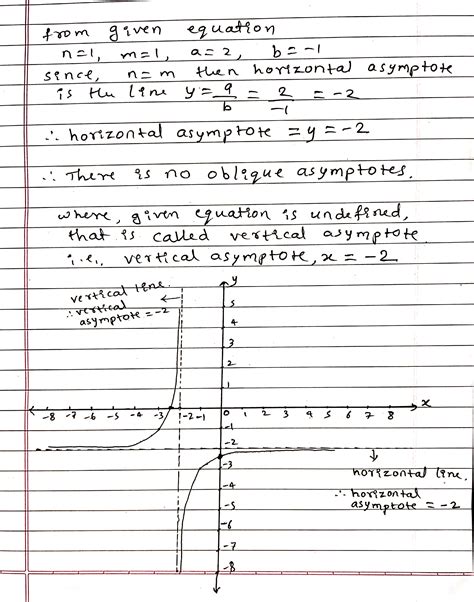 from given equation
n=1, m=1, a=2, b=-1
since, n=m then horizontal asymptote
is the line y = a/b = 2/-1 = -2
∴ horizontal asymptote = y = -2
∴ There is no oblique asymptotes.
where, given equation is undefined,
that is called vertical asymptote.
i.e., vertical asymptote, x = -2
vertical line.
∴ vertical
asymptote = -2
y
5
4
3
2
1
-8 -7 -6 -5 -4 -3 -2 -1 0 1 2 3 4 5 6 7 8 x
-1
-2
-3
-4
-5
-6
-7
-8
horizontal line.
∴ horizontal
asymptote = -2